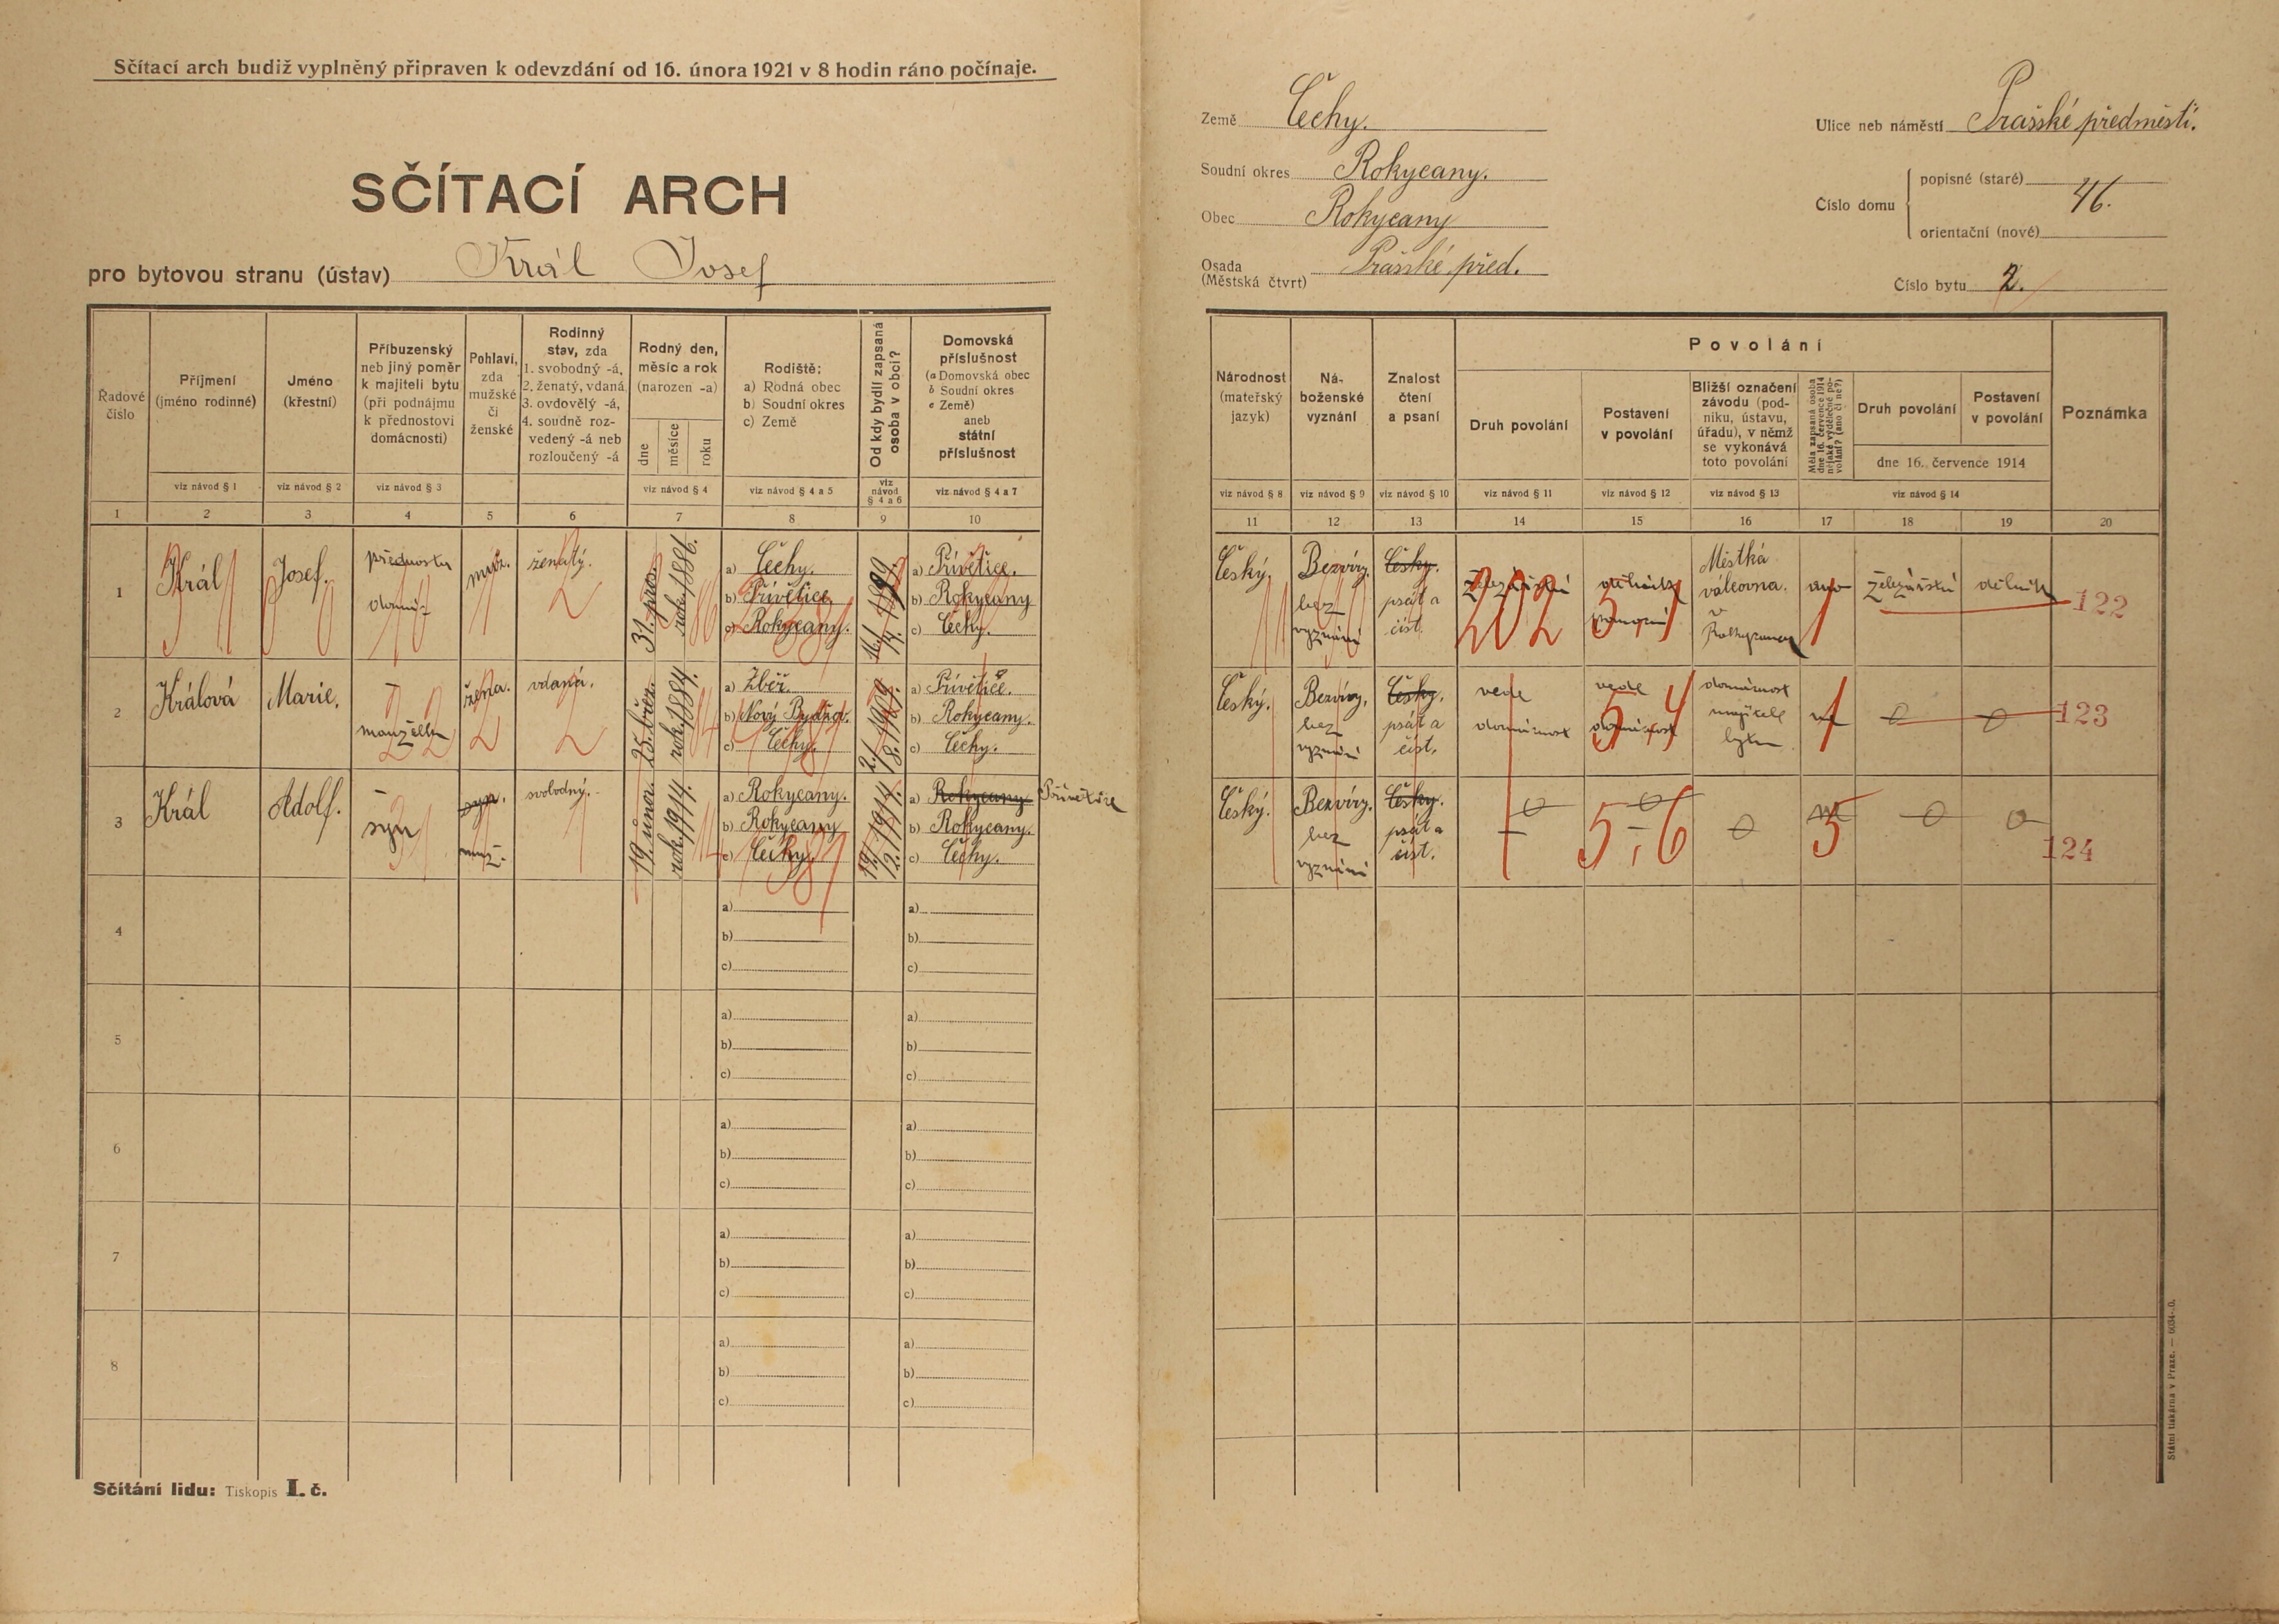 Sčítací arch budiž vyplněný připraven k odevzdání od 16. února 1921 v 8 hodin ráno počínaje.
SČÍTACÍ ARCH
pro bytovou stranu (ústav) Král Josef
Země Čechy.
Soudní okres Rokycany.
Obec Rokycany
Osada
(Městská čtvrt) Pražské před.
Ulice neb náměstí Pražské předměstí.
Číslo domu
popisné (staré) 46.
orientační (nové)
Číslo bytu 2.
Řadové
číslo
Příjmení
(jméno rodinné)
viz návod § 1
Jméno
(křestní)
viz návod § 2
Příbuzenský
neb jiný poměr
k majiteli bytu
(při podnájmu
k přednostovi
domácnosti)
viz návod § 3
Pohlaví,
zda
mužské
či
ženské
Rodinný
stav, zda
1. svobodný -á,
2. ženatý, vdaná,
3. ovdovělý -á,
4. soudně roz-
vedený -á neb
rozloučený -á
Rodný den,
měsíc a rok
(narozen -a)
dne
měsíce
roku
viz návod § 4
Rodiště:
a) Rodná obec
b) Soudní okres
c) Země
viz návod § 4 a 5
Od kdy bydlí zapsaná
osoba v obci?
viz
návod
§ 4 a 6
Domovská
příslušnost
(a Domovská obec
b Soudní okres
c Země)
aneb
státní
příslušnost
viz návod § 4 a 7
1 2 3 4 5 6 7 8 9 10
Národnost
(mateřský
jazyk)
viz návod § 8
Ná-
boženské
vyznání
viz návod § 9
Znalost
čtení
a psaní
viz návod § 10
Povolání
Druh povolání
viz návod § 11
Postavení
v povolání
viz návod § 12
Bližší označení
závodu (pod-
niku, ústavu,
úřadu), v němž
se vykonává
toto povolání
viz návod § 13
Měla zapsaná osoba
dne 16. července 1914
nějaké výdělečné po-
volání? (ano či ne?)
Druh povolání
Postavení
v povolání
dne 16. července 1914
viz návod § 14
Poznámka
11 12 13 14 15 16 17 18 19 20
1
Král
Josef.
přednosta
domác.
muž.
ženatý.
31. pros.
rok. 1886.
a) Čechy.
b) Přívětice
c) Rokycany.
a) Přívětice.
b) Rokycany
c) Čechy.
Český.
Bezvěrý.
bez
vyznání
Česky.
psát a
číst.
202
dělník
Městká
válcovna.
v
ano
železářství
dělník
122
2
Králová
Marie.
manželka
žena.
vdaná.
25. břez.
rok. 1884.
a) Žběř.
b) Nový Bydžov.
c) Čechy.
a) Přívětice.
b) Rokycany.
c) Čechy.
Český.
Bezvěrý.
bez
vyznání
Česky.
psát a
číst.
vede
domácnost
vede
domácnost
5-4
domácnost
majitele
bytu
123
3
Král
Adolf.
syn
syn.
muž.
svobodný.
19. únor.
rok. 1914.
a) Rokycany.
b) Rokycany
c) Čechy.
19/
2. 1914.
a) Rokycany Přívětice
b) Rokycany.
c) Čechy.
Český.
Bezvěrý.
bez
vyznání
Česky.
psát a
číst.
5-6
124
4
a)
b)
c)
a)
b)
c)
5
a)
b)
c)
a)
b)
c)
6
a)
b)
c)
a)
b)
c)
7
a)
b)
c)
a)
b)
c)
8
a)
b)
c)
a)
b)
c)
Sčítání lidu: Tiskopis I. č.
Státní tiskárna v Praze. — 6034-20.